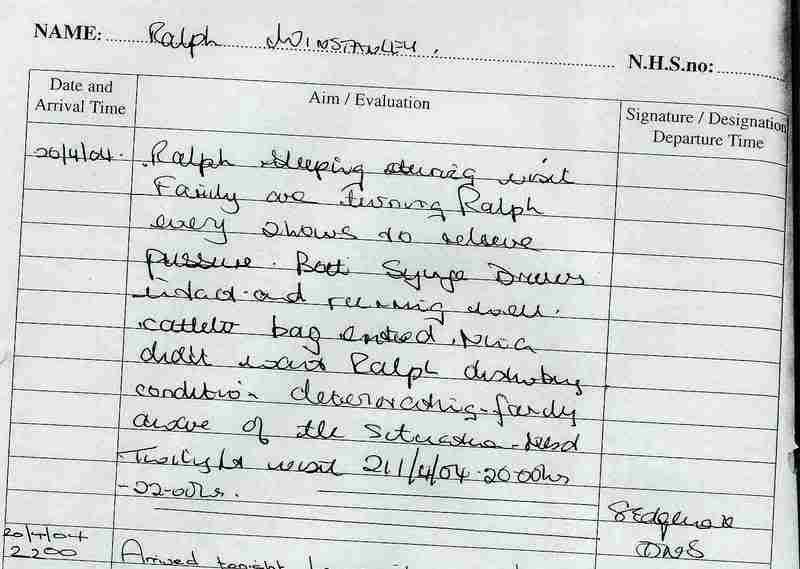 NAME: Ralph WINSTANLEY.
N.H.S.no:
Date and Arrival Time
Aim / Evaluation
Signature / Designation Departure Time
20/4/04. Ralph sleeping during visit
Family are turning Ralph
every 2 hours to relieve
pressure. Both Syringe Drivers
intact and running well.
catheter bag emptied.
didn't want Ralph disturbing
condition deteriorating - family
aware of the Situation - need
Twilight visit 21/4/04 - 20-00hrs
-22-00hrs.
DNS
20/4/04
2200
Arrived tonight